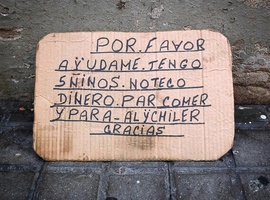 POR.FAVOR
AYUDAME.TENGO
5NIÑOS.NOTEGO
DINERO.PAR COMER
Y PARA-ALYCHILER
GRACIAS